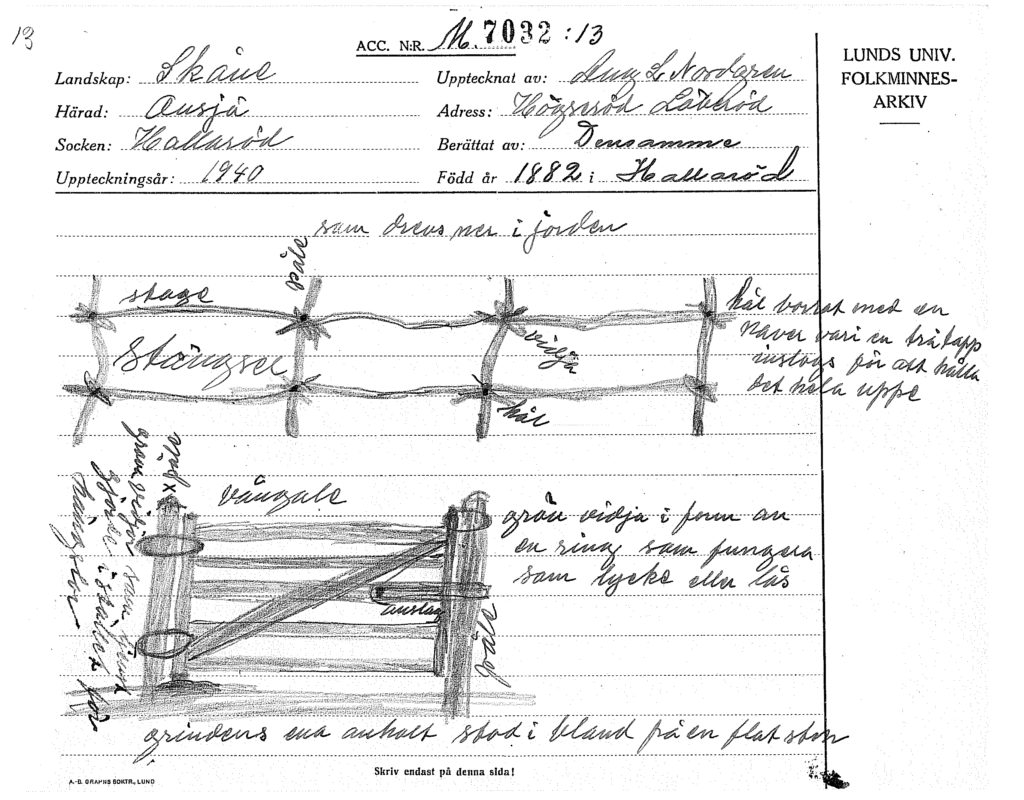 13
ACC. N:R. M. 7032 : 13
LUNDS UNIV.
FOLKMINNES-
ARKIV
Landskap: Skåne
Upptecknat av: Aug L Nordgren
Härad: Onsjö
Adress: Högseröd Löberöd
Socken: Hallaröd
Berättat av: Densamme
Uppteckningsår: 1940
Född år 1882 i Hallaröd
som drevs ner i jorden
påle
stage
hål borrat med en
naver vari en trätapp
inslogs för att hålla
det hela uppe
vidja
Stängsel
hål
påle x
gröna vidjor som
gjorde i stället för
hängslor
vångale
grön vidja i form av
en ring som fungera
som lycke eller lås
anslag
påle
grindens ena anhalt stod i bland på en flat sten
Skriv endast på denna sida!
A.-B. GRAPHS BOKTR., LUND